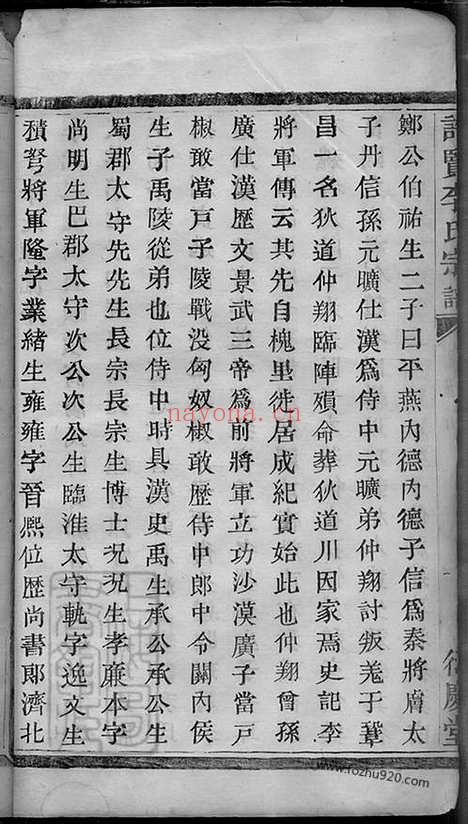 鄭公伯祐生二子曰平燕內德內德子信爲秦將膚太
子丹信孫元曠仕漢爲侍中元曠弟仲翔討叛羌于
昌一名狄道仲翔臨陣殞命葬狄道川因家焉史記李
將軍傳云其先自槐里徙居成紀實始此也仲翔曾孫
廣仕漢歷文景武三帝爲前將軍立功沙漠廣子當戶
椒敢當戶子陵戰没匈奴椒敢歷侍中郎中令關內侯
生子禹陵從弟也位侍中時具漢史禹生承公承公生
蜀郡太守先先生長宗長宗生博士況況生孝廉本字
尚明生巴郡太守次公次公生臨淮太守軌字逸文生
積弩將軍隆字業緒生雍雍字晉熙位歷尚書郎濟北
李氏宗譜
慶堂
nayona.cn
www.rozhu920.com